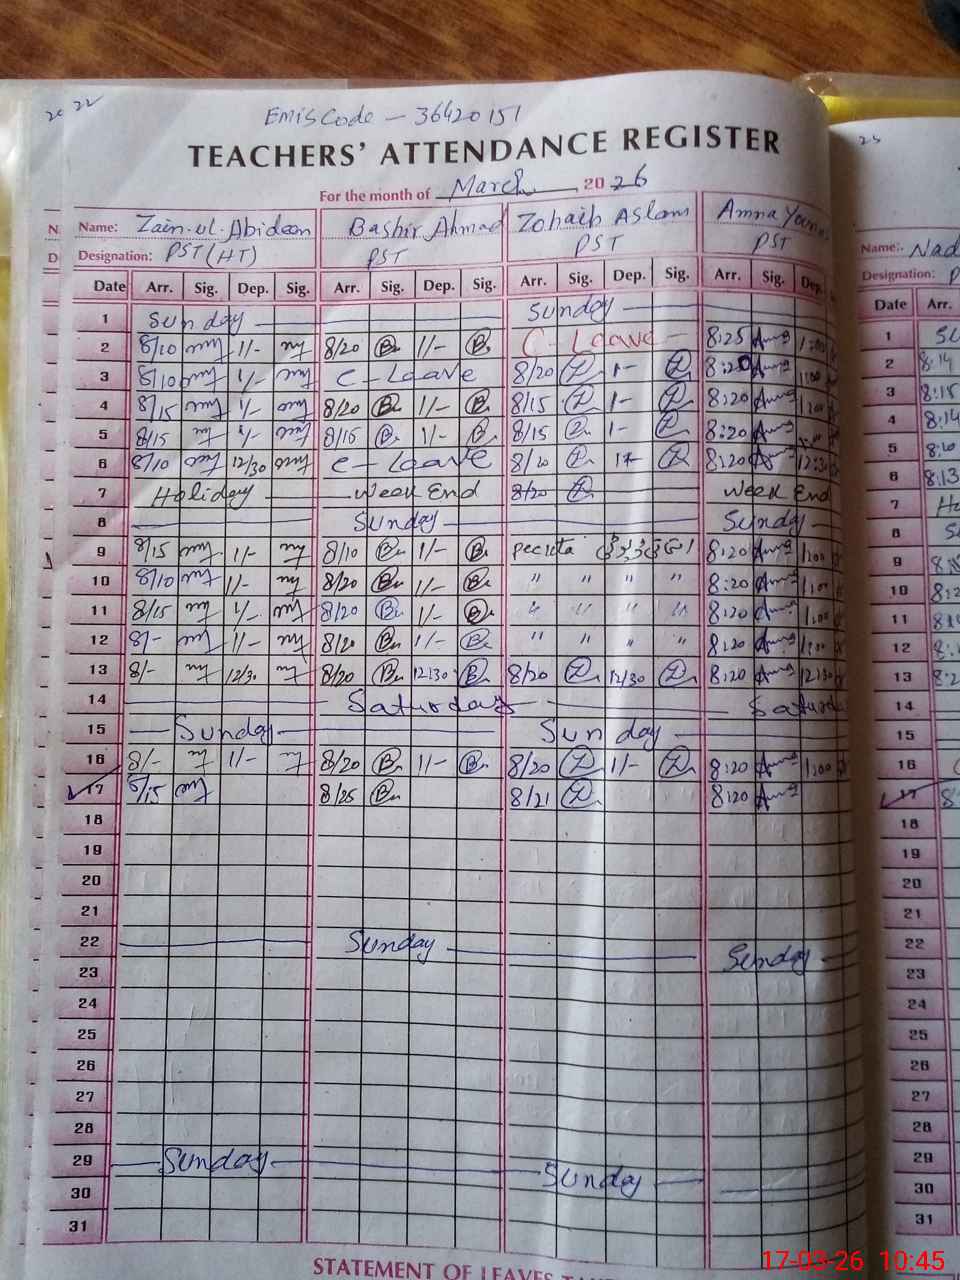 2022
EMIS Code - 36420151
25
TEACHERS' ATTENDANCE REGISTER
For the month of March 2026
Name: Zain-ul-Abideen Bashir Ahmad Zohaib Aslam Amna
Designation: PST (HT) PST PST PST
Name: Nad
Designation: P
Date Arr. Sig. Dep. Sig. Arr. Sig. Dep. Sig. Arr. Sig. Dep. Sig. Arr. Sig. Dep. Date Arr.
1 Sunday Sunday 1
2 8/10 1/- 8/20 B 1/- B C-Leave 8:25 1:00 2 8:14
3 8/10 1/- C-Leave 8/20 Z 1- Z 8:20 1:00 3 8:15
4 8/15 1/- 8/20 B 1/- B 8/15 Z 1- Z 8:20 1:00 4 8:14
5 8/15 1/- 8/15 B 1/- B 8/15 Z 1- Z 8:20 5
6 8/10 12/30 C-Leave 8/10 Z Z 8:20 12:30 6 8:13
7 Holiday Week End 8/20 Z Week End 7
8 Sunday Sunday 8
9 8/15 1/- 8/10 B 1/- B 8:20 1:00 9
10 8/10 1/- 8/20 B 1/- B " " " " 8:20 1:00 10
11 8/15 1/- 8/20 B 1/- B " " " " 8:20 1:00 11
12 8/- 1/- 8/20 B 1/- B " " " " 8:20 1:00 12
13 8/- 12/30 8/20 B 12/30 B 8/20 Z 12/30 Z 8:20 12:30 13
14 Saturday 14
15 Sunday Sunday 15
16 8/- 1/- 8/20 B 1/- B 8/20 Z 1/- Z 8:20 1:00 16
17 8/15 8/25 B 8/21 Z 8:20 17
18 18
19 19
20 20
21 21
22 Sunday Sunday 22
23 23
24 24
25 25
26 26
27 27
28 28
29 Sunday Sunday 29
30 30
31 31
STATEMENT OF LEAVES
17-03-26 10:45